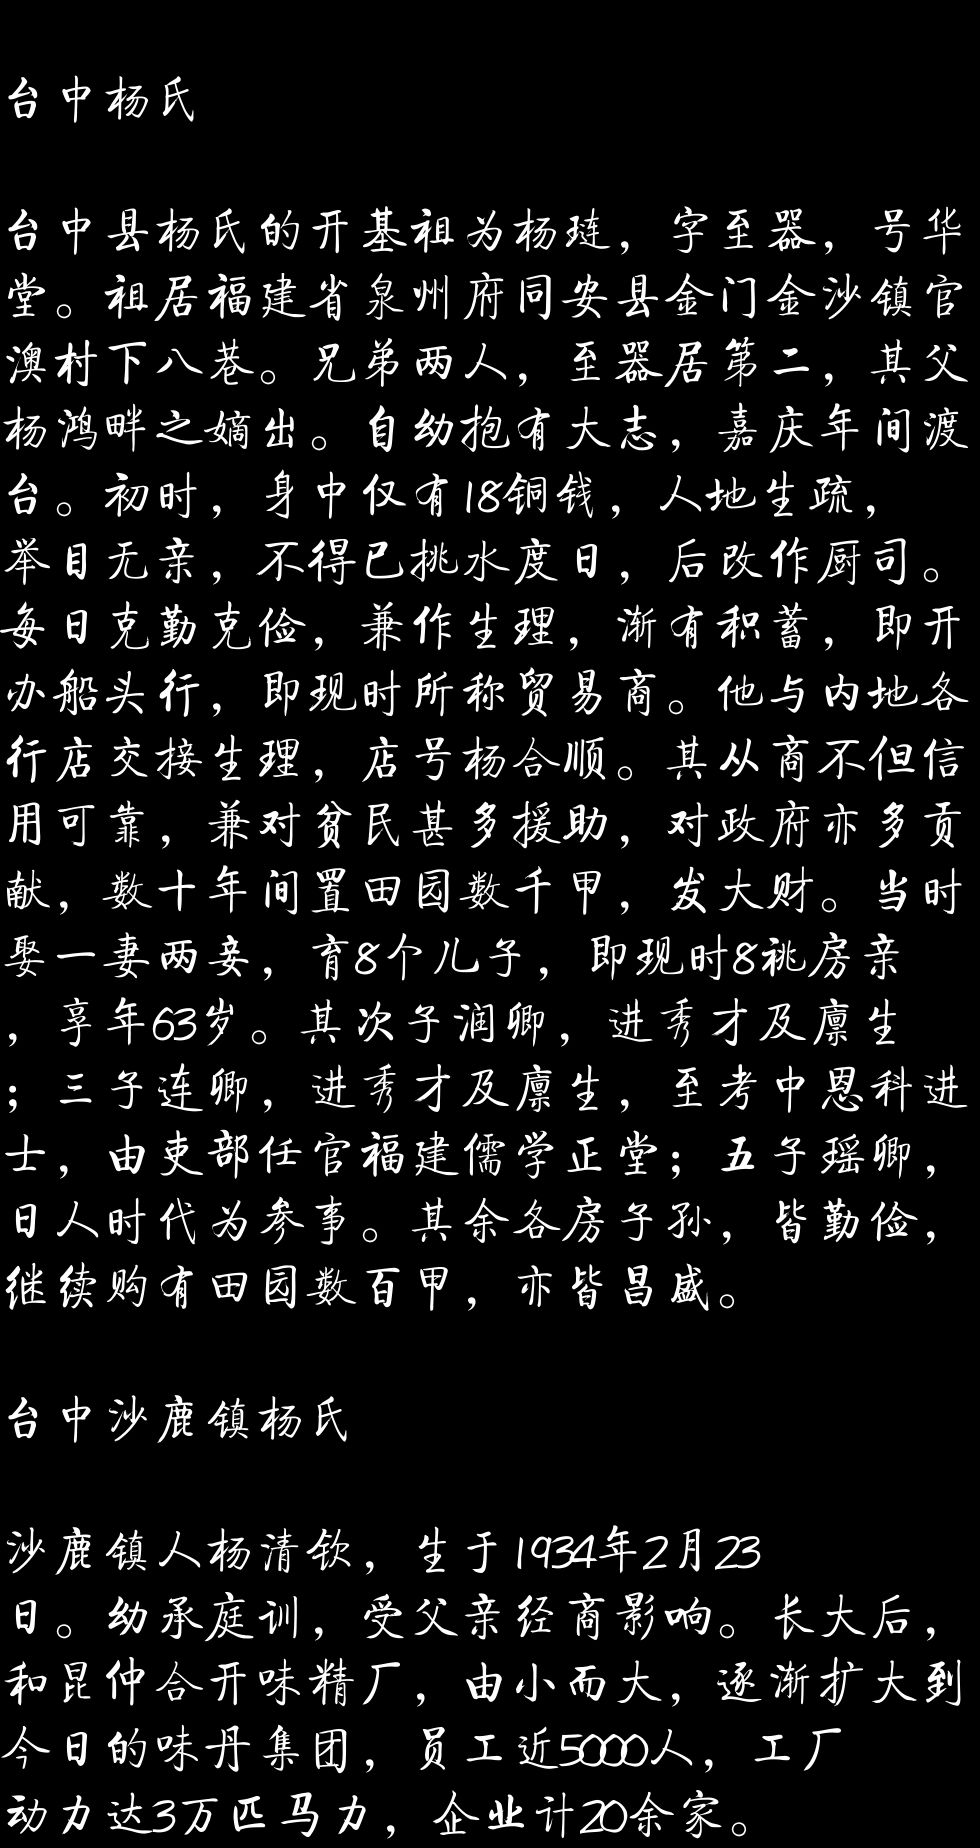 台中杨氏
台中县杨氏的开基祖为杨琏，字至器，号华
堂。祖居福建省泉州府同安县金门金沙镇官
澳村下八巷。兄弟两人，至器居第二，其父
杨鸿畔之嫡出。自幼抱有大志，嘉庆年间渡
台。初时，身中仅有18铜钱，人地生疏，
举目无亲，不得已挑水度日，后改作厨司。
每日克勤克俭，兼作生理，渐有积蓄，即开
办船头行，即现时所称贸易商。他与内地各
行店交接生理，店号杨合顺。其从商不但信
用可靠，兼对贫民甚多援助，对政府亦多贡
献，数十年间置田园数千甲，发大财。当时
娶一妻两妾，育8个儿子，即现时8祧房亲
，享年63岁。其次子润卿，进秀才及廪生
；三子连卿，进秀才及廪生，至考中恩科进
士，由吏部任官福建儒学正堂；五子瑶卿，
日人时代为参事。其余各房子孙，皆勤俭，
继续购有田园数百甲，亦皆昌盛。
台中沙鹿镇杨氏
沙鹿镇人杨清钦，生于1934年2月23
日。幼承庭训，受父亲经商影响。长大后，
和昆仲合开味精厂，由小而大，逐渐扩大到
今日的味丹集团，员工近5000人，工厂
动力达3万匹马力，企业计20余家。